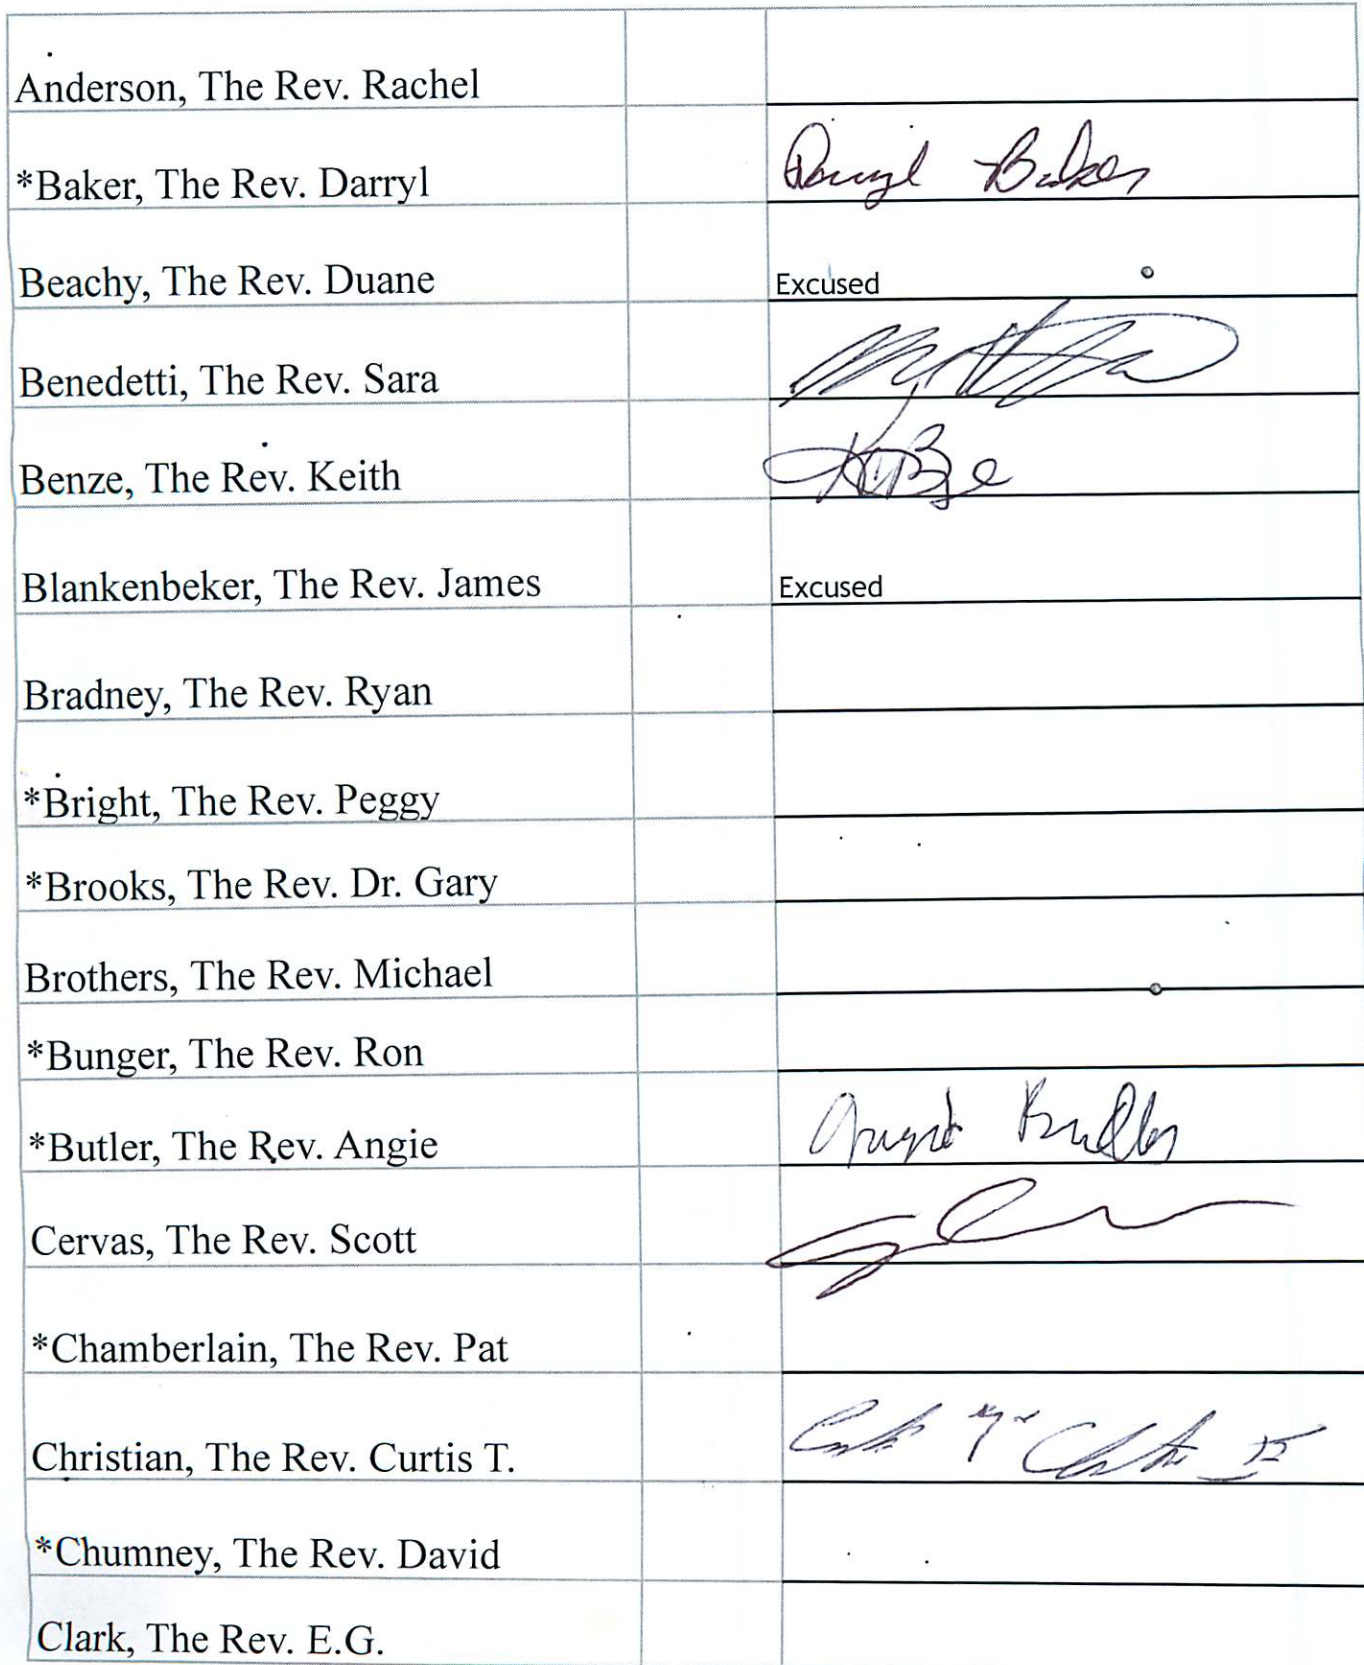 Anderson, The Rev. Rachel
*Baker, The Rev. Darryl Darryl Baker
Beachy, The Rev. Duane Excused
Benedetti, The Rev. Sara
Benze, The Rev. Keith
Blankenbeker, The Rev. James Excused
Bradney, The Rev. Ryan
*Bright, The Rev. Peggy
*Brooks, The Rev. Dr. Gary
Brothers, The Rev. Michael
*Bunger, The Rev. Ron
*Butler, The Rev. Angie Butler
Cervas, The Rev. Scott
*Chamberlain, The Rev. Pat
Christian, The Rev. Curtis T.
*Chumney, The Rev. David
Clark, The Rev. E.G.